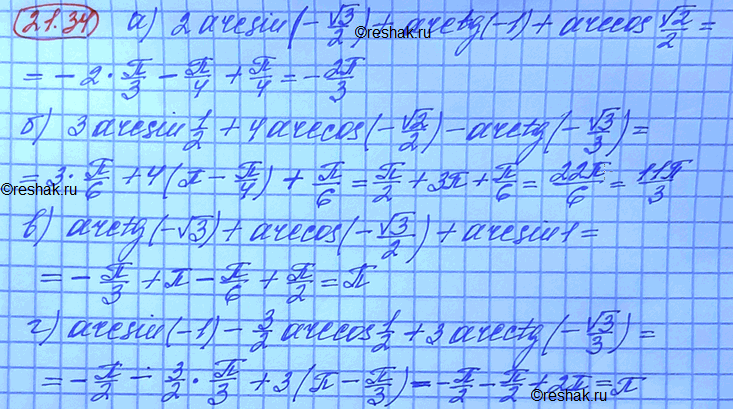 21.34 а) 2 arcsin(-√3/2) + arctg(-1) + arccos √2/2 =
= -2 · π/3 - π/4 + π/4 = -2π/3
©reshak.ru
б) 3 arcsin 1/2 + 4 arccos(-√2/2) - arctg(-√3/3) =
= 3 · π/6 + 4(π - π/4) + π/6 = π/2 + 3π + π/6 = 22π/6 = 11π/3
©reshak.ru
©reshak.ru
в) arctg(-√3) + arccos(-√3/2) + arcsin 1 =
= -π/3 + π - π/6 + π/2 = π
г) arcsin(-1) - 3/2 arccos 1/2 + 3 arcctg(-√3/3) =
= -π/2 - 3/2 · π/3 + 3(π - π/3) = -π/2 - π/2 + 2π = π
©reshak.ru